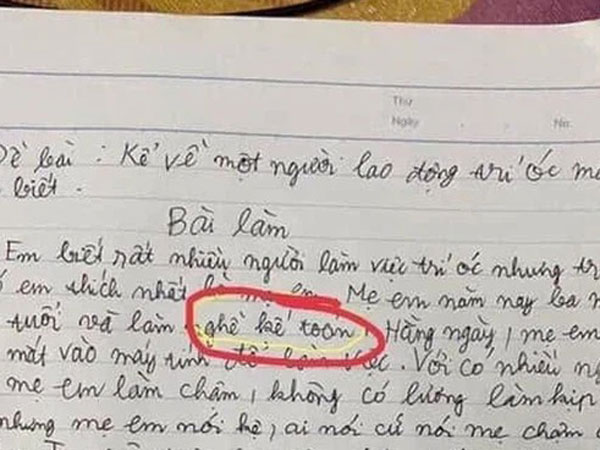 Thứ
Ngày No.
Đề bài : Kể về một người lao động trí óc mà
biết.
Bài làm
Em biết rất nhiều người làm việc trí óc nhưng
em thích nhất là mẹ em. Mẹ em năm nay ba
tuổi và làm nghề kế toán. Hằng ngày, mẹ em
mắt vào máy tính để làm việc. Vời có nhiều
mẹ em làm chậm, không có lương làm kịp
nhưng mẹ em nói kệ, ai nói cứ nói mẹ chậm